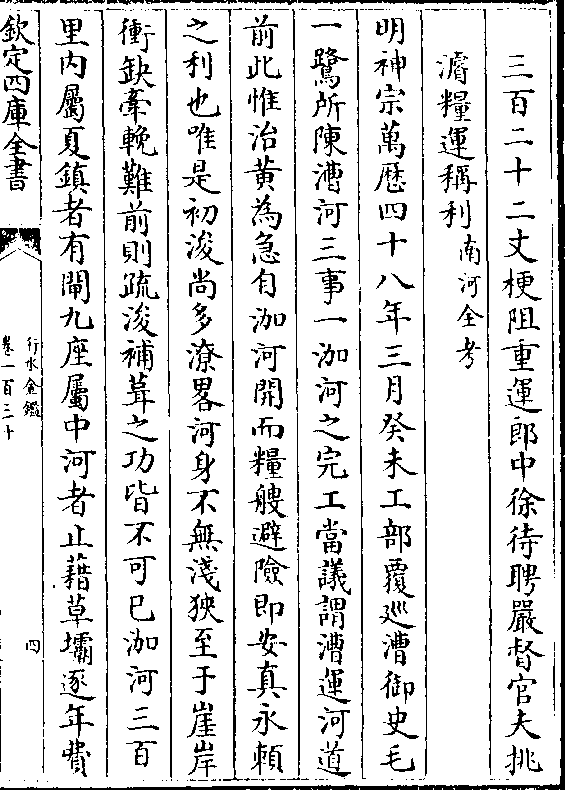 三百二十二丈梗阻重運郎中徐待聘嚴督官夫挑
濬糧運稱利南河全考
明神宗萬歷四十八年三月癸未工部覆廵漕御史毛
一鷺所陳漕河三事一泇河之完工當議謂漕運河道
前此惟治黄為急自泇河開而糧艘避險即安真永頼
之利也唯是初浚尚多潦畧河身不無淺狹至于崖岸
衝缺牽輓難前則疏浚補葺之功皆不可已泇河三百
里内屬夏鎮者有閘九座屬中河者止藉草壩逐年費
欽定四庫全書
行水金鑑
卷一百三十
四